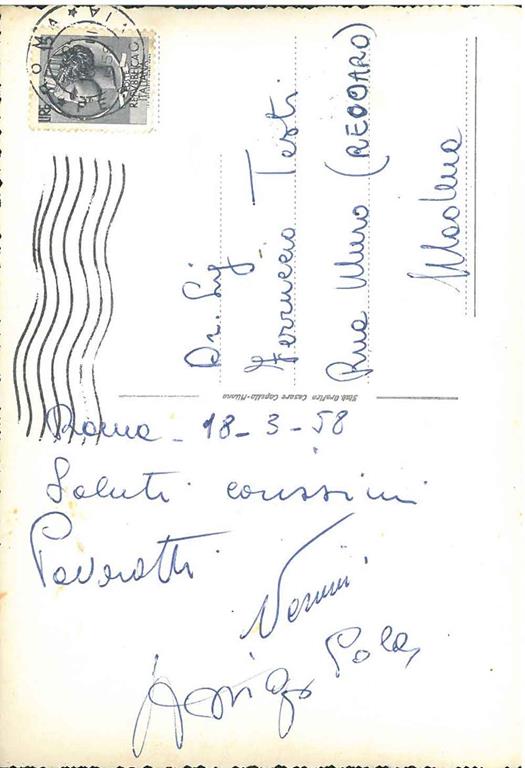 ROMA
LIRE 15
REPUBBLICA
ITALIANA
Dr. Sig
Ferruccio Testi
Rua Muro (REDDARO)
Modena
Stab. Grafico Cesare Capello - Milano
Roma - 18 - 3 - 58
Saluti carissimi
Pavarotti
Arrigo Pola